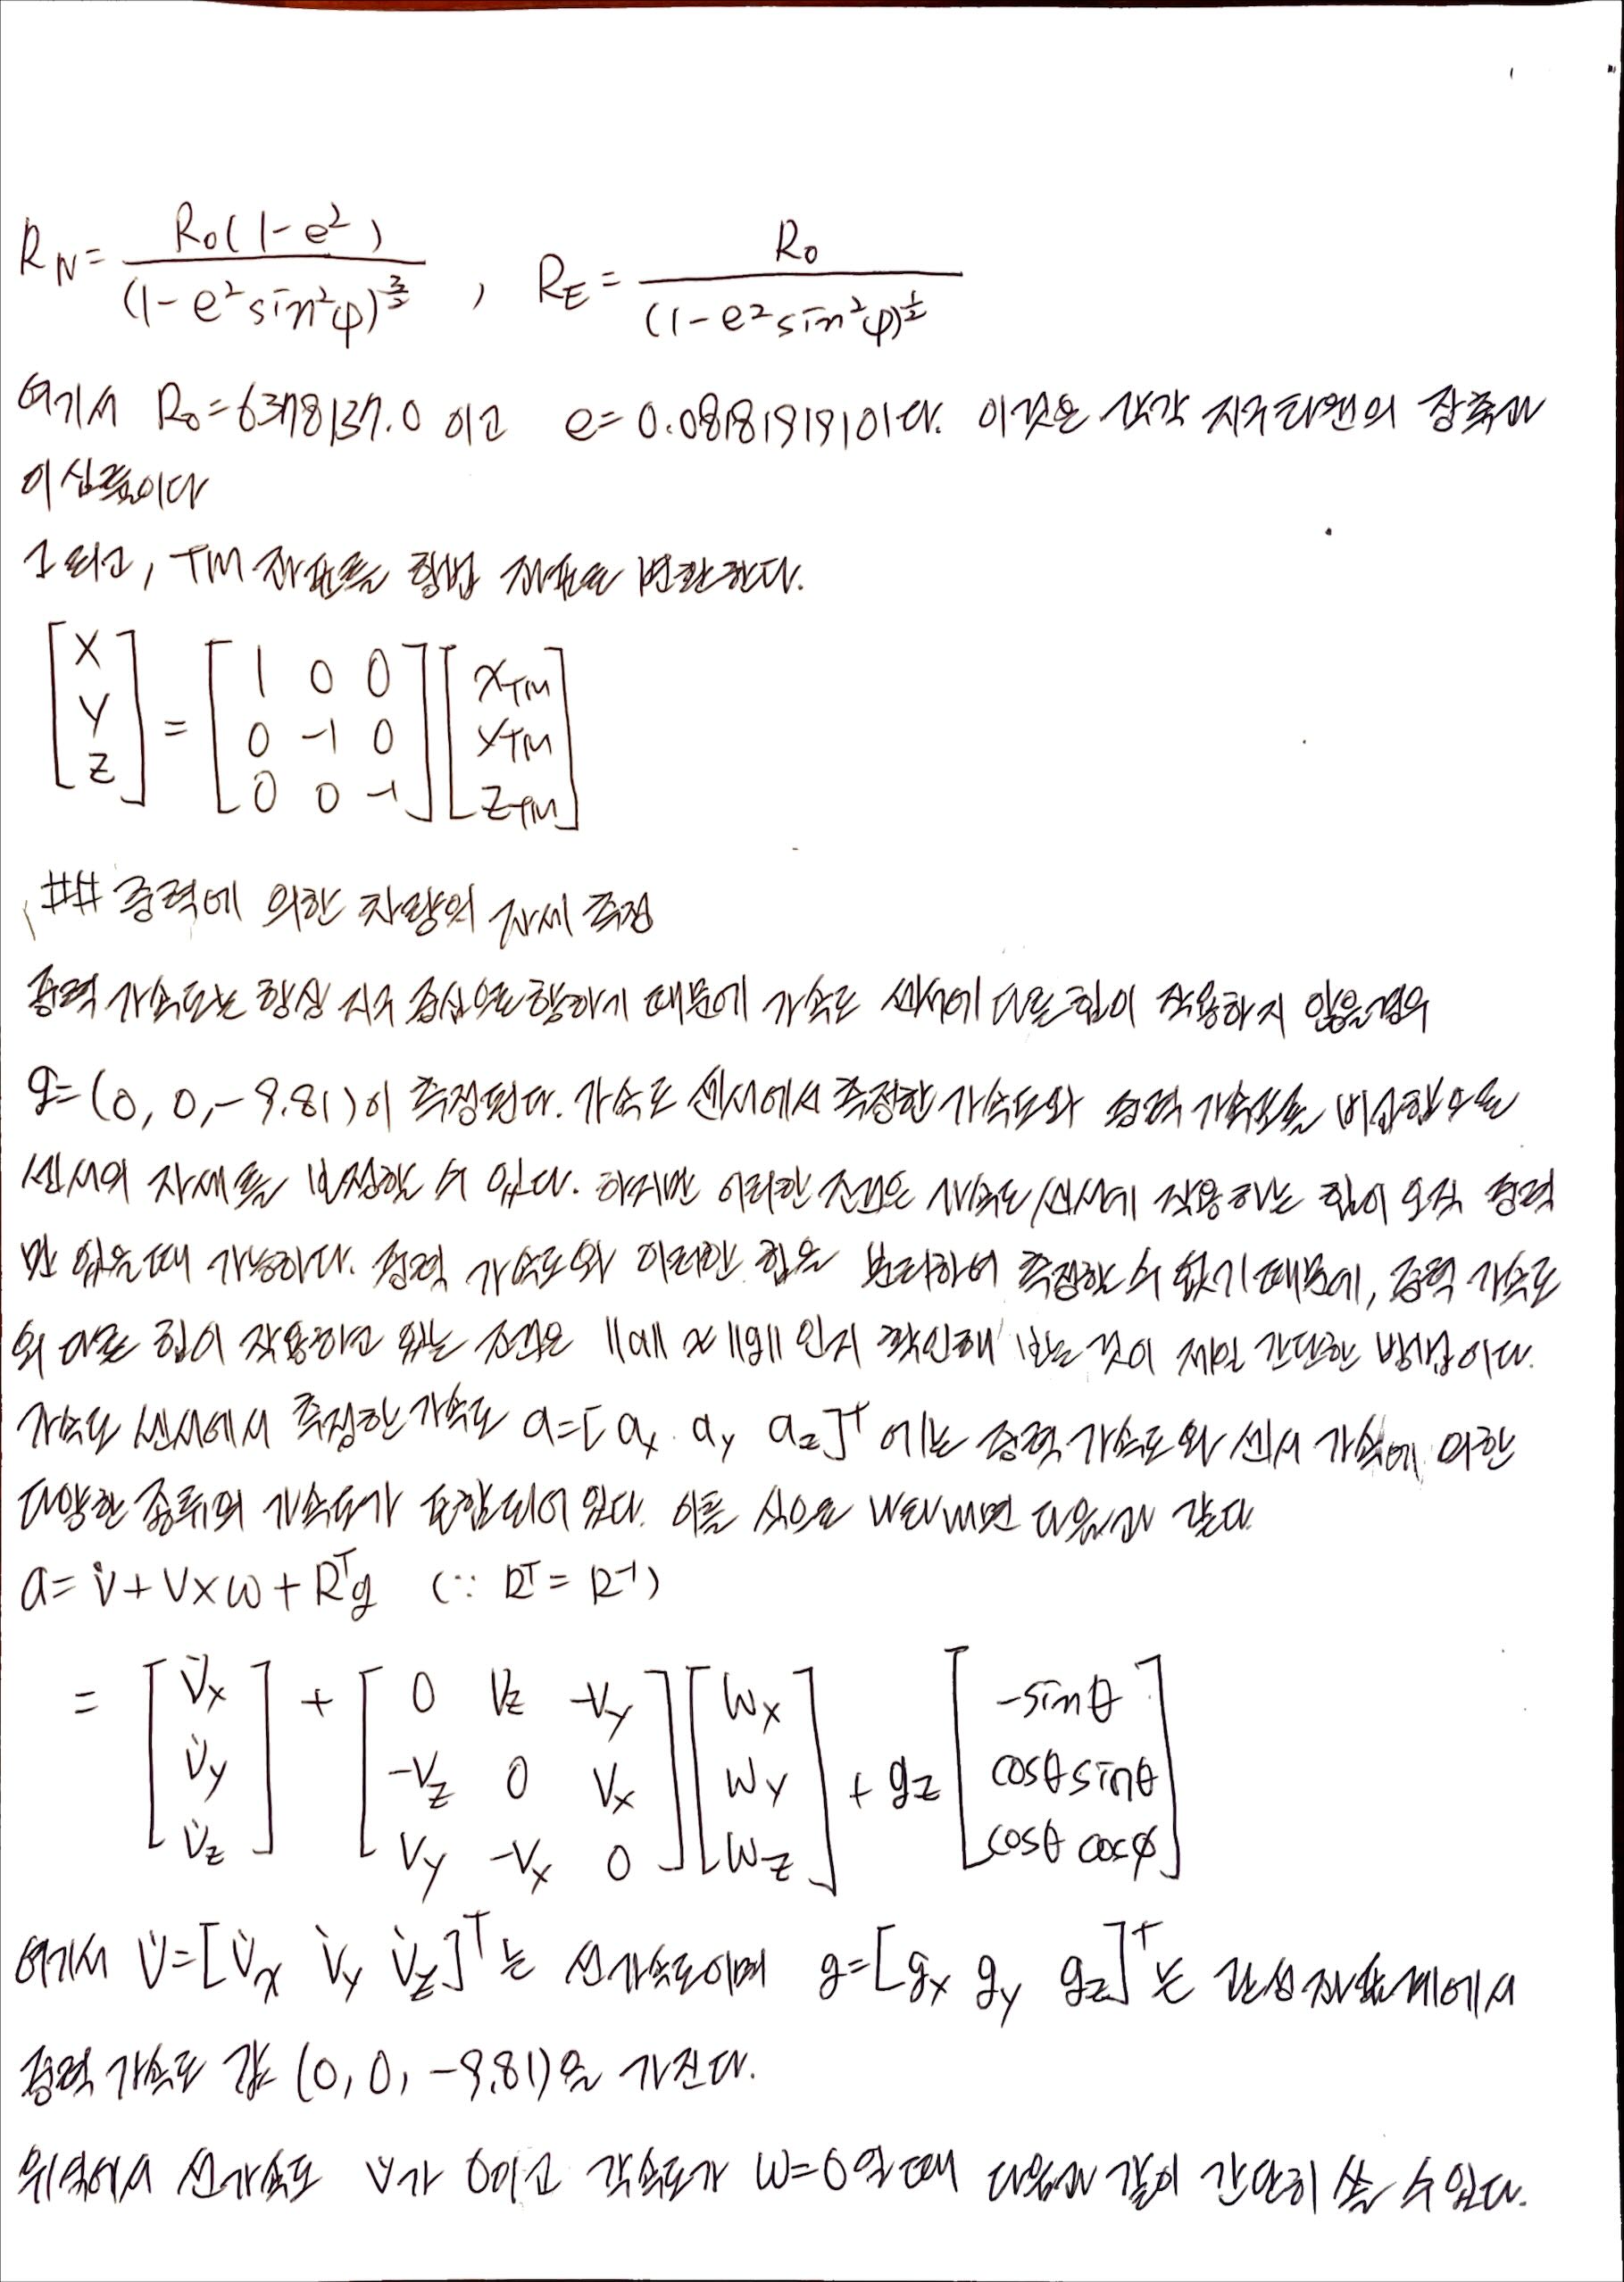 R_N = R_0(1-e²) / (1-e²sin²φ)^{3/2} , R_E = R_0 / (1-e²sin²φ)^{1/2}
여기서 R_0=6378137.0 이고 e=0.0818191910이다. 이것은 각각 지구타원의 장축과
이심률이다
그리고, TM 좌표를 항법 좌표로 변환한다.
[X Y Z] = [1 0 0; 0 -1 0; 0 0 -1] [x_TM y_TM z_TM]
## 중력에 의한 차량의 자세 측정
중력 가속도는 항상 지구 중심으로 향하기 때문에 가속도 센서에 다른 힘이 작용하지 않을 경우
g=(0, 0, -9.81)이 측정된다. 가속도 센서에서 측정한 가속도와 중력 가속도를 비교함으로
센서의 자세를 보정할 수 있다. 하지만 이러한 조건은 가속도 센서에 작용하는 힘이 오직 중력
만 있을 때 가능하다. 중력 가속도와 이러한 힘은 분리하여 측정할 수 없기 때문에, 중력 가속도
외 다른 힘이 작용하고 있는 조건은 ||a|| ≈ ||g|| 인지 확인해 보는 것이 제일 간단한 방법이다.
가속도 센서에서 측정한 가속도 a=[a_x a_y a_z]^T 에는 중력 가속도와 센서 가속에 의한
다양한 종류의 가속도가 포함되어 있다. 이를 식으로 나타내면 다음과 같다.
a = v̇ + v×ω + R^T g (∵ R^T = R^{-1})
= [v̇_x v̇_y v̇_z] + [0 v_z -v_y; -v_z 0 v_x; v_y -v_x 0] [ω_x ω_y ω_z] + g_z [-sinθ; cosθsinθ; cosθ cosφ]
여기서 v̇=[v̇_x v̇_y v̇_z]^T는 선가속도이며 g=[g_x g_y g_z]^T는 관성좌표계에서
중력 가속도 값 (0, 0, -9.81)을 가진다.
위식에서 선가속도 v̇가 0이고 각속도가 ω=0일 때 다음과 같이 간단히 쓸 수 있다.